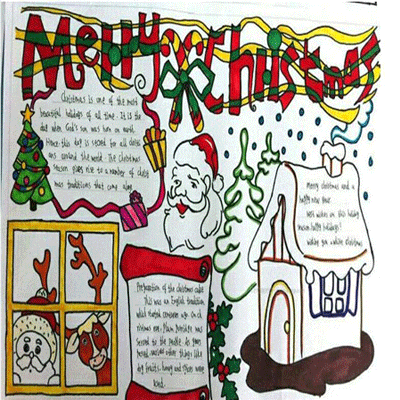 Merry Christmas
Christmas is one of the most
beautiful holidays of all time. It is the
day when God's son was born on earth.
Hence this day is sacred for all
and around the world. The Christmas
season gives rise to a number of
traditions that came
Merry christmas and a
happy new year
best wishes on this holiday
season happy holidays!
wishing you a white christmas
Preparation of the christmas cakes
This was an English tradition,
which started centuries ago. On
Plum porridge was
served to the people. As years
passed, various other things like
dry fruits, honey and spices were